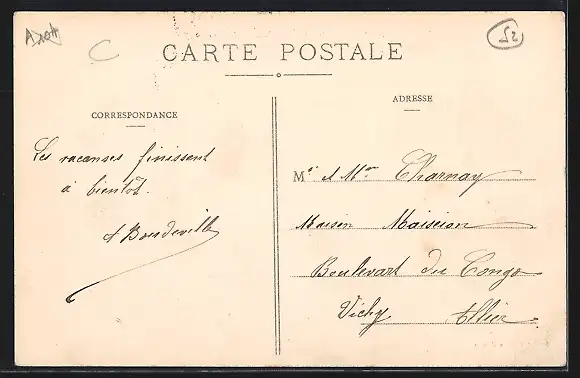 52
C
CARTE POSTALE
CORRESPONDANCE
Les vacanses finissent
à bientôt.
A Boudeville
ADRESSE
Mr et Mme Charnay
Maison Maission
Boulevart du Congo
Vichy Allier